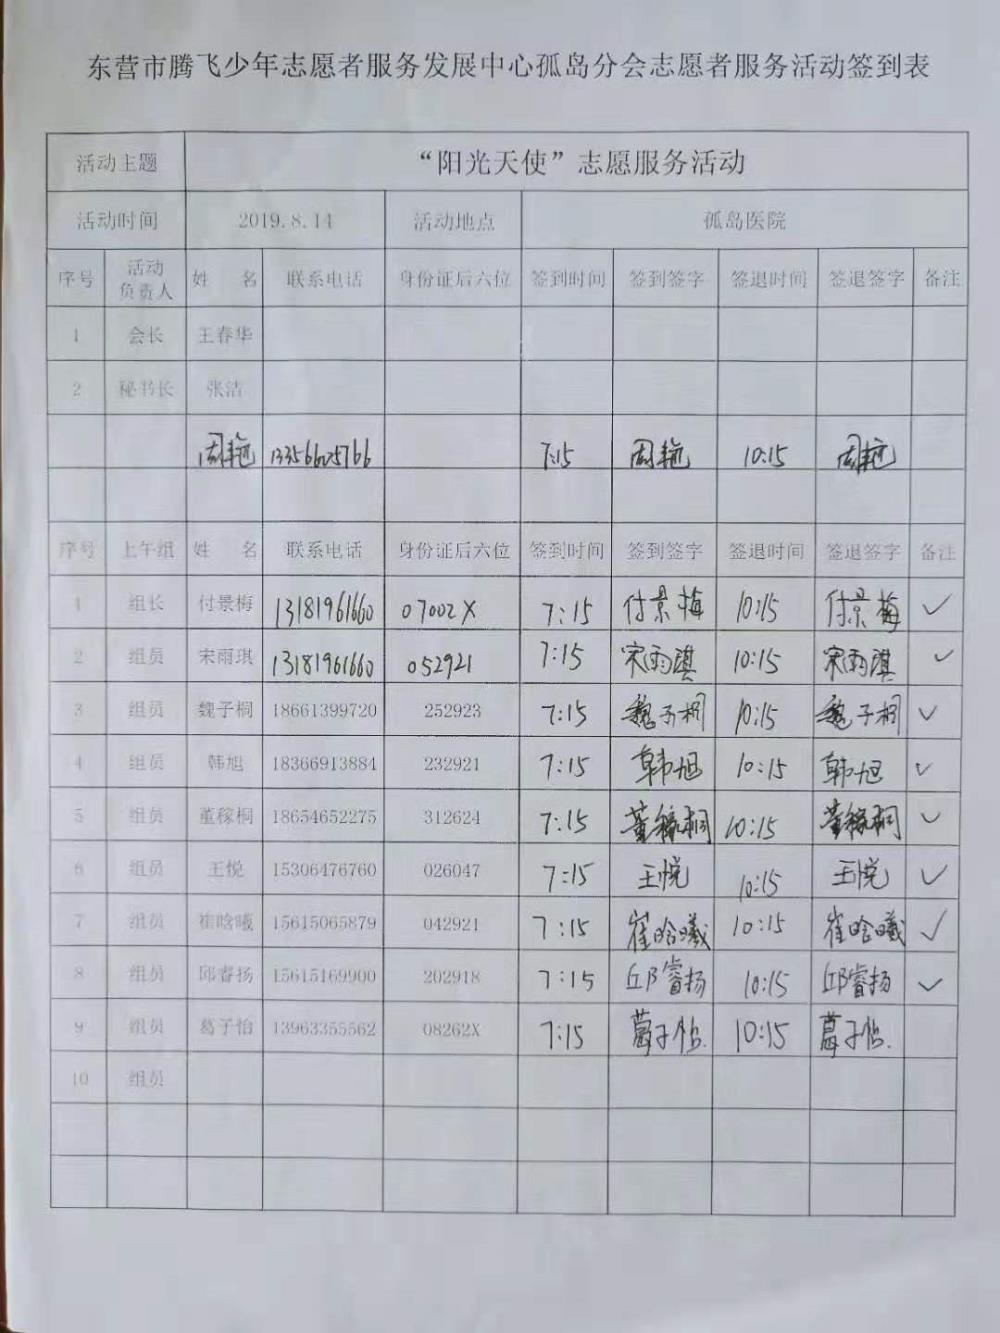 东营市腾飞少年志愿者服务发展中心孤岛分会志愿者服务活动签到表
活动主题 “阳光天使”志愿服务活动
活动时间 2019.8.14 活动地点 孤岛医院
序号 活动负责人 姓 名 联系电话 身份证后六位 签到时间 签到签字 签退时间 签退签字 备注
1 会长 王春华
2 秘书长 张洁
周艳 13356605766 7:15 周艳 10:15 周艳
序号 上午组 姓 名 联系电话 身份证后六位 签到时间 签到签字 签退时间 签退签字 备注
1 组长 付景梅 13181961660 07002X 7:15 付景梅 10:15 付景梅 ✓
2 组员 宋雨琪 13181961660 052921 7:15 宋雨淇 10:15 宋雨淇 ✓
3 组员 魏子桐 18661399720 252923 7:15 魏子桐 10:15 魏子桐 ✓
4 组员 韩旭 18366913884 232921 7:15 韩旭 10:15 韩旭 ✓
5 组员 董稼桐 18654652275 312624 7:15 董稼桐 10:15 董稼桐 ✓
6 组员 王悦 15306476760 026047 7:15 王悦 10:15 王悦 ✓
7 组员 崔晗曦 15615065879 042921 7:15 崔晗曦 10:15 崔晗曦 ✓
8 组员 邱睿扬 15615169900 202918 7:15 邱睿扬 10:15 邱睿扬 ✓
9 组员 葛子怡 13963355562 08262X 7:15 葛子怡. 10:15 葛子怡.
10 组员